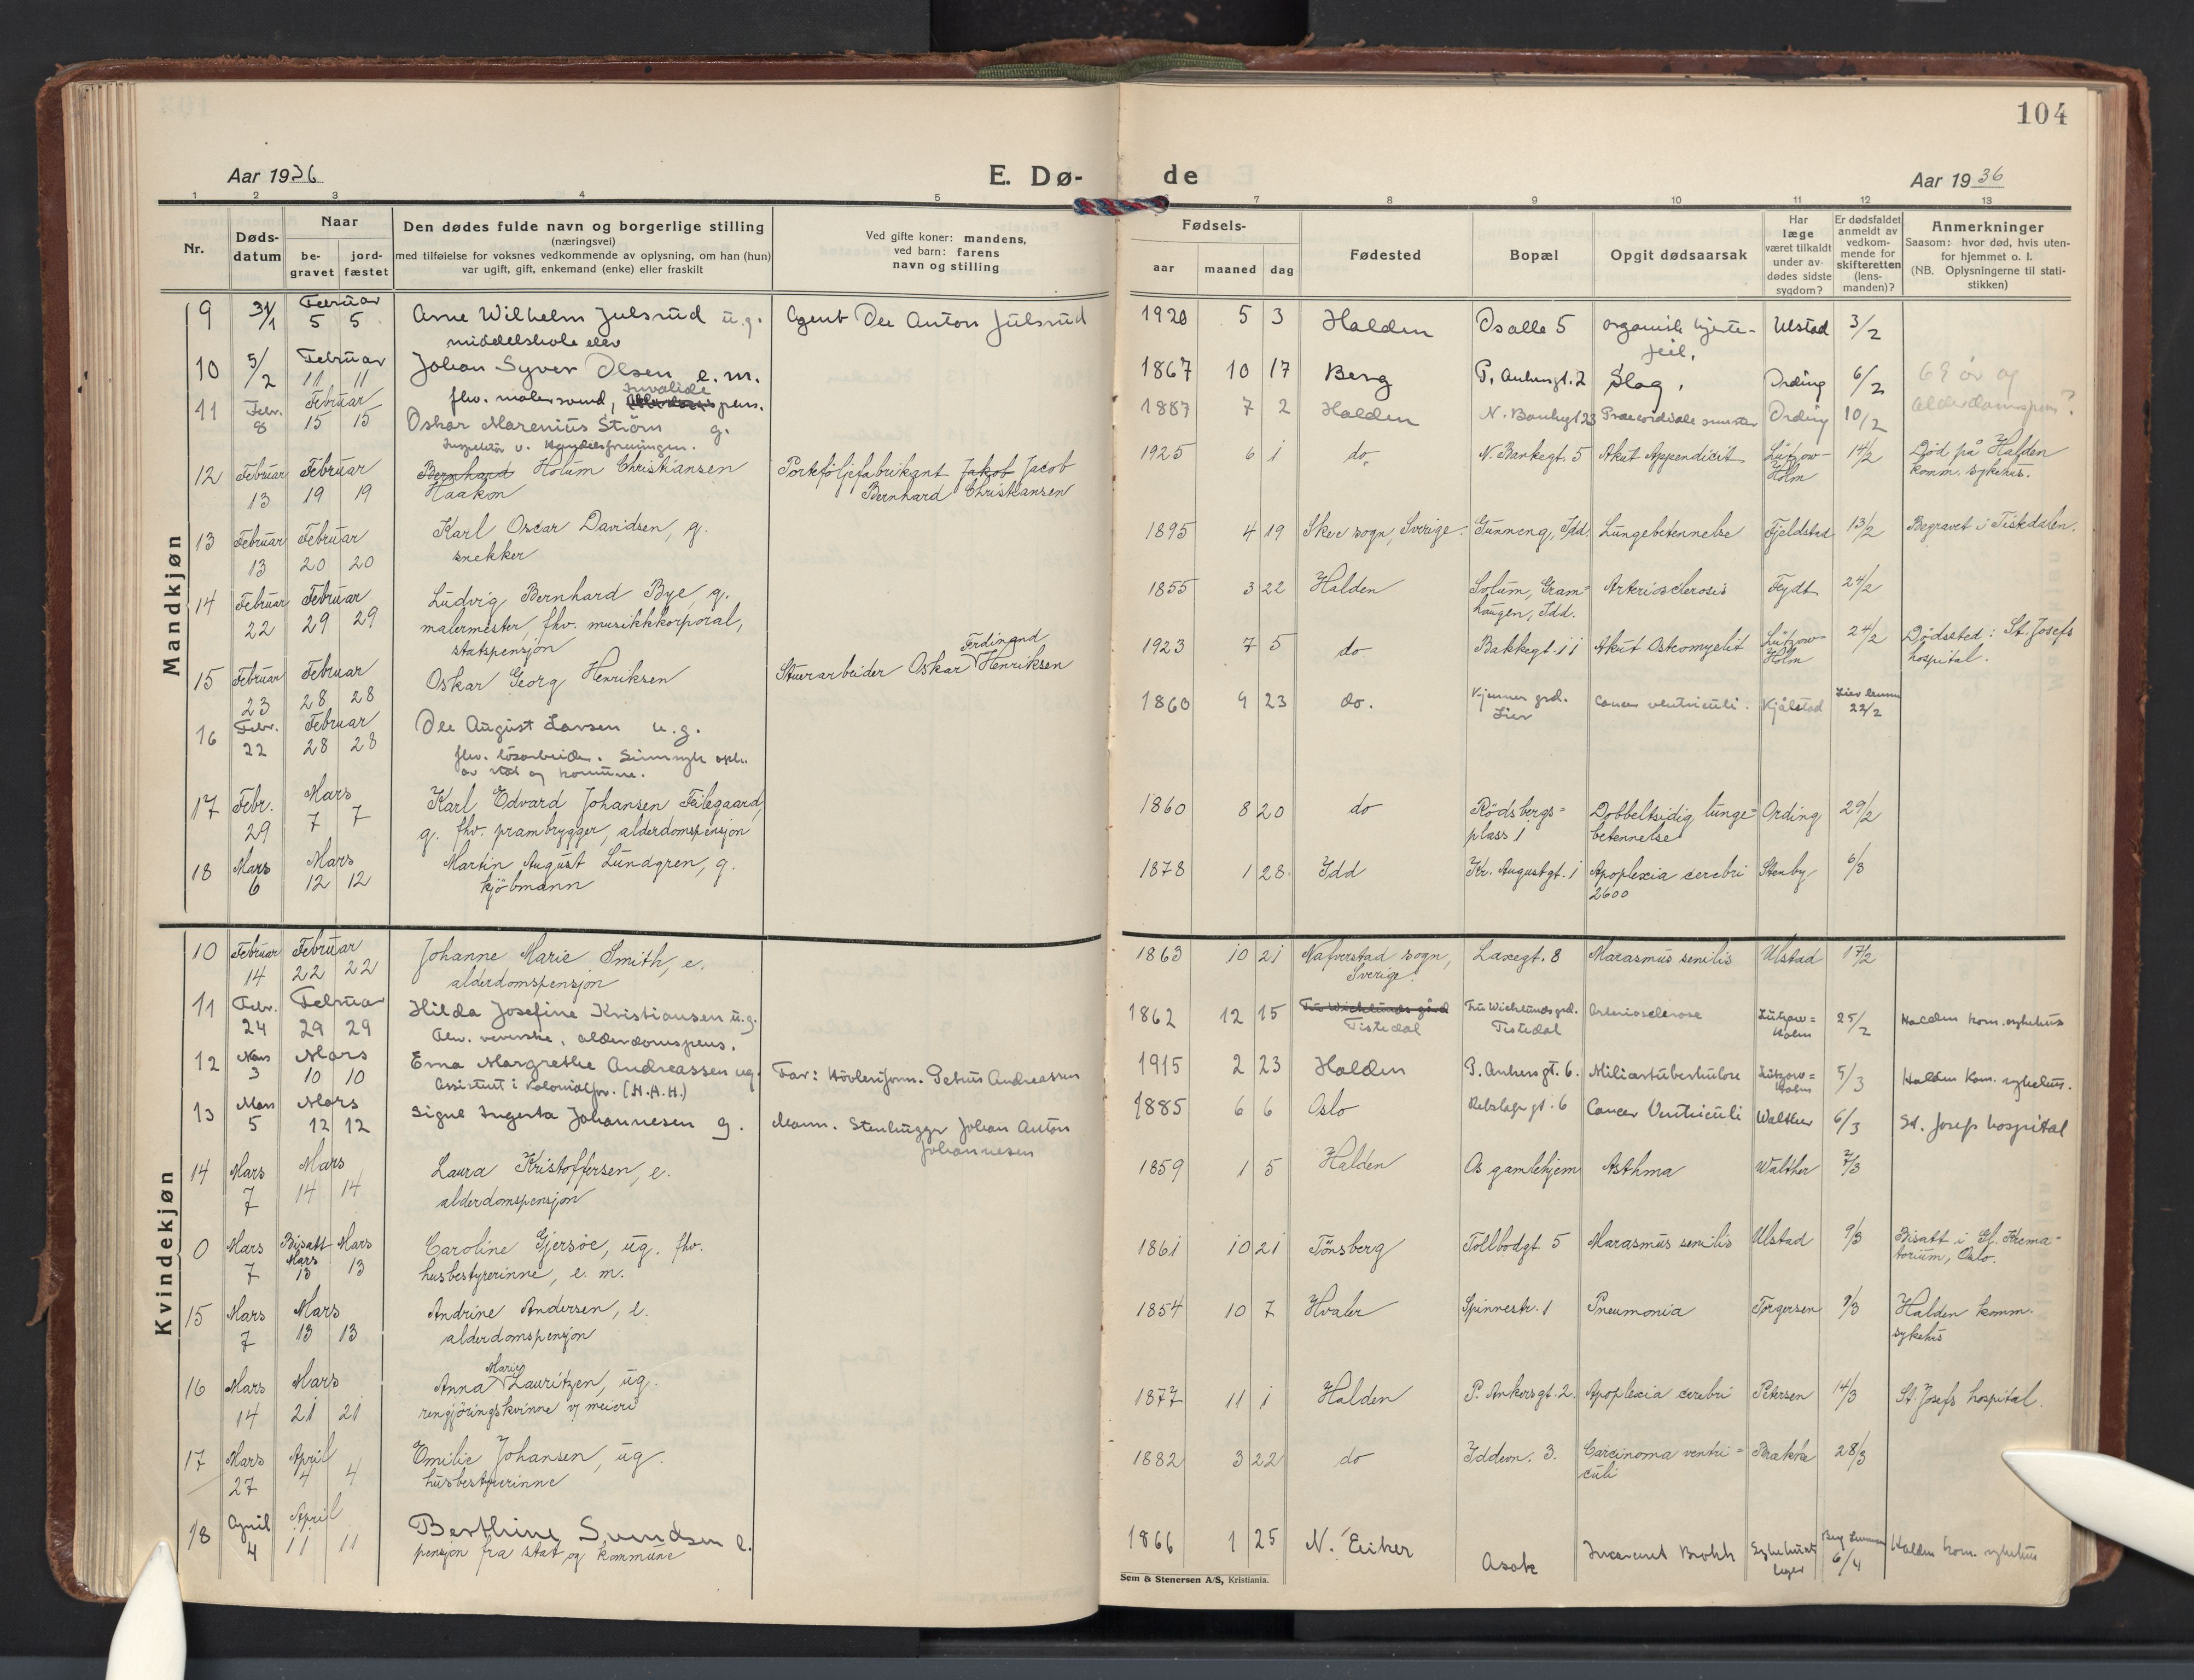 104
Aar 1936
E. Dø-
de
Aar 1936
1 2 3 4 5 7 8 9 10 11 12 13
Nr.
Døds-
datum
Naar
be-
gravet
jord-
fæstet
Den dødes fulde navn og borgerlige stilling
(næringsvei)
med tilføielse for voksnes vedkommende av oplysning, om han (hun)
var ugift, gift, enkemand (enke) eller fraskilt
Ved gifte koner: mandens,
ved barn: farens
navn og stilling
Fødsels-
aar maaned dag
Fødested
Bopæl
Opgit dødsaarsak
Har
læge
været tilkaldt
under av-
dødes sidste
sygdom?
Er dødsfaldet
anmeldt av
vedkom-
mende for
skifteretten
(lens-
manden)?
Anmerkninger
Saasom: hvor død, hvis uten-
for hjemmet o. l.
(NB. Oplysningerne til stati-
stikken)
Mandkjøn
9 31/1 Februar 5 5 Arne Wilhelm Julsrud u.g. Agent Ole Anton Julsrud 1920 5 3 Halden Os alle 5 organisk hjerte- Ulstad 3/2
middelskole elev feil.
10 5/2 Februar 11 11 Johan Syver Olsen e.m. 1867 10 17 Berg P. Ankersgt. 2 Slag. Ording 6/2 69 år og
fhv. malersvend, invalide pens. alderdomspens?
11 Febr. 8 Februar 15 15 Oskar Marenius Strøm g. 1887 7 2 Halden N. Bankegt 23 Præcordiale smerter Ording 10/2
Inspektør v. Handelsforeningen.
12 Februar 13 Februar 19 19 Bernhard Holum Christiansen Porteføljefabrikant Jakob Jacob 1925 6 1 do. N. Bankegt. 5 Akut Appendicit Lützow- 14/2 Død på Halden
Haakon Bernhard Christiansen Holm komm. sykehus.
13 Februar 13 Februar 20 20 Karl Oscar Davidsen, g. 1895 4 19 Skee sogn, Sverige. Gunneng, Idd. Lungebetennelse Fjeldstad 13/2 Begravet i Tistedalen.
snekker
14 Februar 22 Februar 29 29 Ludvig Bernhard Bye, g. 1855 3 22 Halden Solum, Gram- Arteriosclerosis Feydt 24/2
malermester, fhv. musikkkorporal, haugen, Idd.
statspensjon
15 Februar 23 Februar 28 28 Oskar Georg Henriksen Stuerarbeider Oskar Ferdinand Henriksen 1923 7 5 do. Bakkegt. 11 Akut Osteomyelit Lützow- 24/2 Dødsted: St. Josefs
Holm hospital.
16 Febr. 22 Februar 28 28 Ole August Larsen u.g. 1860 9 23 do. Kjenner grd. Cancer ventriculi. Kjølstad Lier lensm 22/2
fhv. løsarbeider. Sinnssyk Lier
av stat og kommune.
17 Febr. 29 Mars 7 7 Karl Edvard Johansen Feilegaard, 1860 8 20 do Rödsbergs- Dobbeltsidig lunge- Ording 29/2
g. fhv. prambrygger, alderdomspensjon plass 1 betennelse
18 Mars 6 Mars 12 12 Martin August Lundgren, g. 1878 1 28 Idd Kr. Augustgt. 1 Apoplexia cerebri Stenby 6/3
kjöbmann 2600
Kvindekjøn
10 Februar 14 Februar 22 22 Johanne Marie Smith, e. 1863 10 21 Nafverstad sogn, Laxegt. 8 Marasmus senilis Ulstad 17/2
alderdomspensjon Sverige.
11 Febr. 24 Februar 29 29 Hilda Josefine Kristiansen u.g. 1862 12 15 Fru Wichlunds gård Fru Wichlunds grd. Arteriosclerose Lützow- 25/2 Halden kom. sykehus
fhv. veverske, alderdomspens. Tistedal Tistedal Holm
12 Mars 3 Mars 10 10 Erna Margrethe Andreassen ug. Far: Høvleriform. Petrus Andreassen 1915 2 23 Halden P. Ankersgt. 6. Miliartuberkulose Lützow- 5/3 Halden Kom. sykehus.
Assistent i Kolonialfor. (H.A.H.) Holm
13 Mars 5 Mars 12 12 Signe Ingerta Johannesen g. Mann. Stenhugger Johan Anton 1885 6 6 Oslo Rebslager gt. 6 Cancer Ventriculi Walther 6/3 St. Josep hospital
Johannesen
14 Mars 7 Mars 14 14 Laura Kristoffersen, e. 1859 1 5 Halden Os gamlehjem Asthma Walther 7/3
alderdomspensjon
0 Mars 7 Bisatt Mars 13 Mars 13 Caroline Gjersøe, ug. fhv. 1861 10 21 Tönsberg Tollbodgt. 5 Marasmus senilis Ulstad 9/3 Bisatt i Gl. Krema-
husbestyrerinne, e. m. torium, Oslo.
15 Mars 7 Mars 13 13 Andrine Andersen, e. 1854 10 7 Hvaler Spinnestr. 1 Pneumonia Torgersen 9/3 Halden komm.
alderdomspensjon sykehus
16 Mars 14 Mars 21 21 Anna Marie Lauritzen, ug. 1877 11 1 Halden P. Ankersgt. 2. Apoplexia cerebri Petersen 14/3 St. Josefs hospital.
rengjøringskvinne v/ meieri
17 Mars 27 April 4 4 Emilie Johansen, ug. 1882 3 22 do Iddevn. 3. Carcinoma ventri- 28/3
husbestyrerinne culi
18 April 4 April 11 11 Berthine Svendsen e. 1866 1 25 N. Eiker Asak Incarcerert Brokk Sykehuset Berg Lensm 6/4 Halden kom. sykehus
pensjon fra stat og kommune leger
Sem & Stenersen A/S, Kristiania.